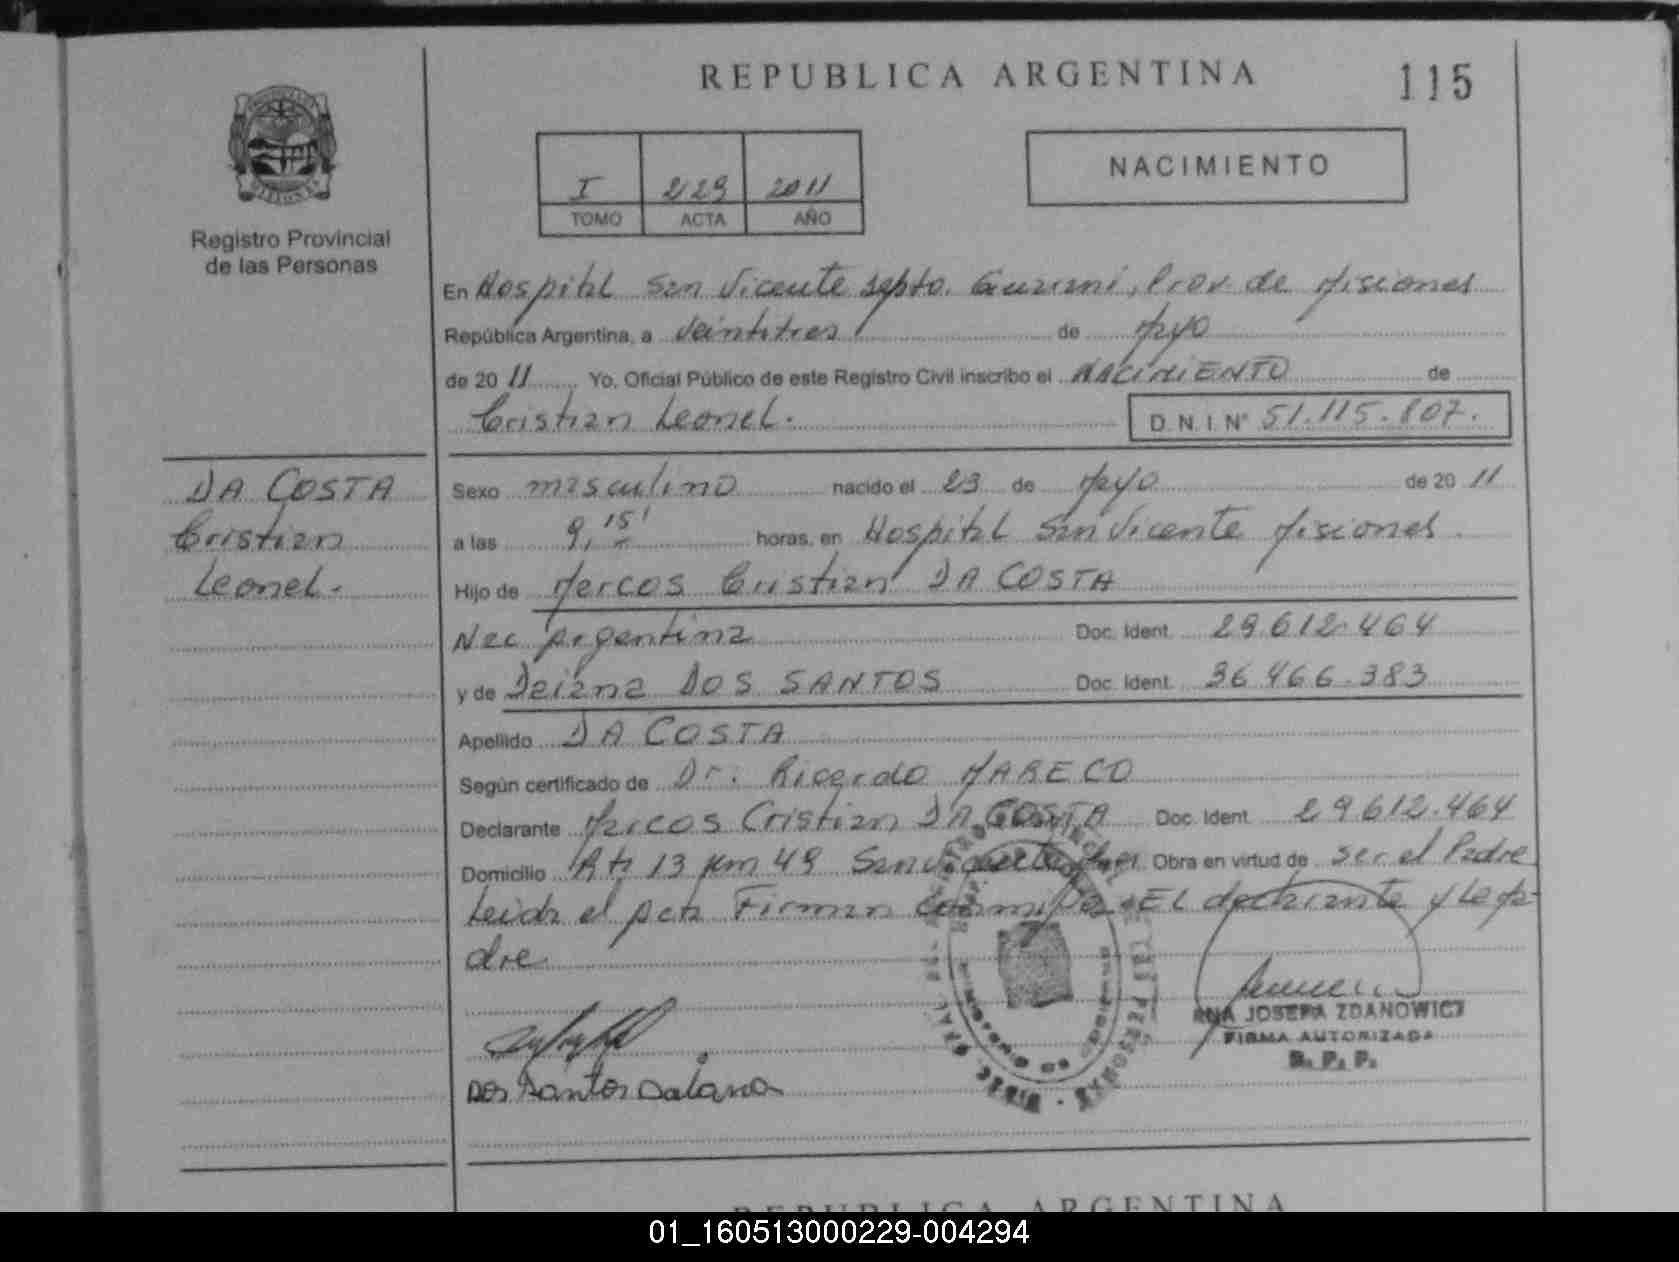 REPUBLICA ARGENTINA
115
I 229 2011
TOMO ACTA AÑO
NACIMIENTO
Registro Provincial
de las Personas
En Hospital San Vicente Depto. Guarani, Prov. de Misiones
República Argentina, a Veintitres de Mayo
de 2011 Yo, Oficial Público de este Registro Civil inscribo el NACIMIENTO de
Cristian Leonel. D. N. I. Nº 51.115.807.
DA COSTA
Cristian
Leonel.
Sexo masculino nacido el 23 de Mayo de 2011
a las 9,15' horas, en Hospital San Vicente Misiones.
Hijo de Marcos Cristian DA COSTA
Nac Argentina Doc. Ident. 29.612.464
y de Daiana DOS SANTOS Doc. Ident. 36.466.383
Apellido DA COSTA
Según certificado de Dr. Ricardo MARECO
Declarante Marcos Cristian DA COSTA Doc. Ident. 29.612.464
Domicilio Rta 13 Km 49 San Vicente Obra en virtud de ser el Padre
Leida el Acta Firman conmigo El declarante y La Ma-
dre
Dos Santos Daiana
ANA JOSEFA ZDANOWICZ
FIRMA AUTORIZADA
R. P. P.
REPUBLICA ARGENTINA
01_160513000229-004294